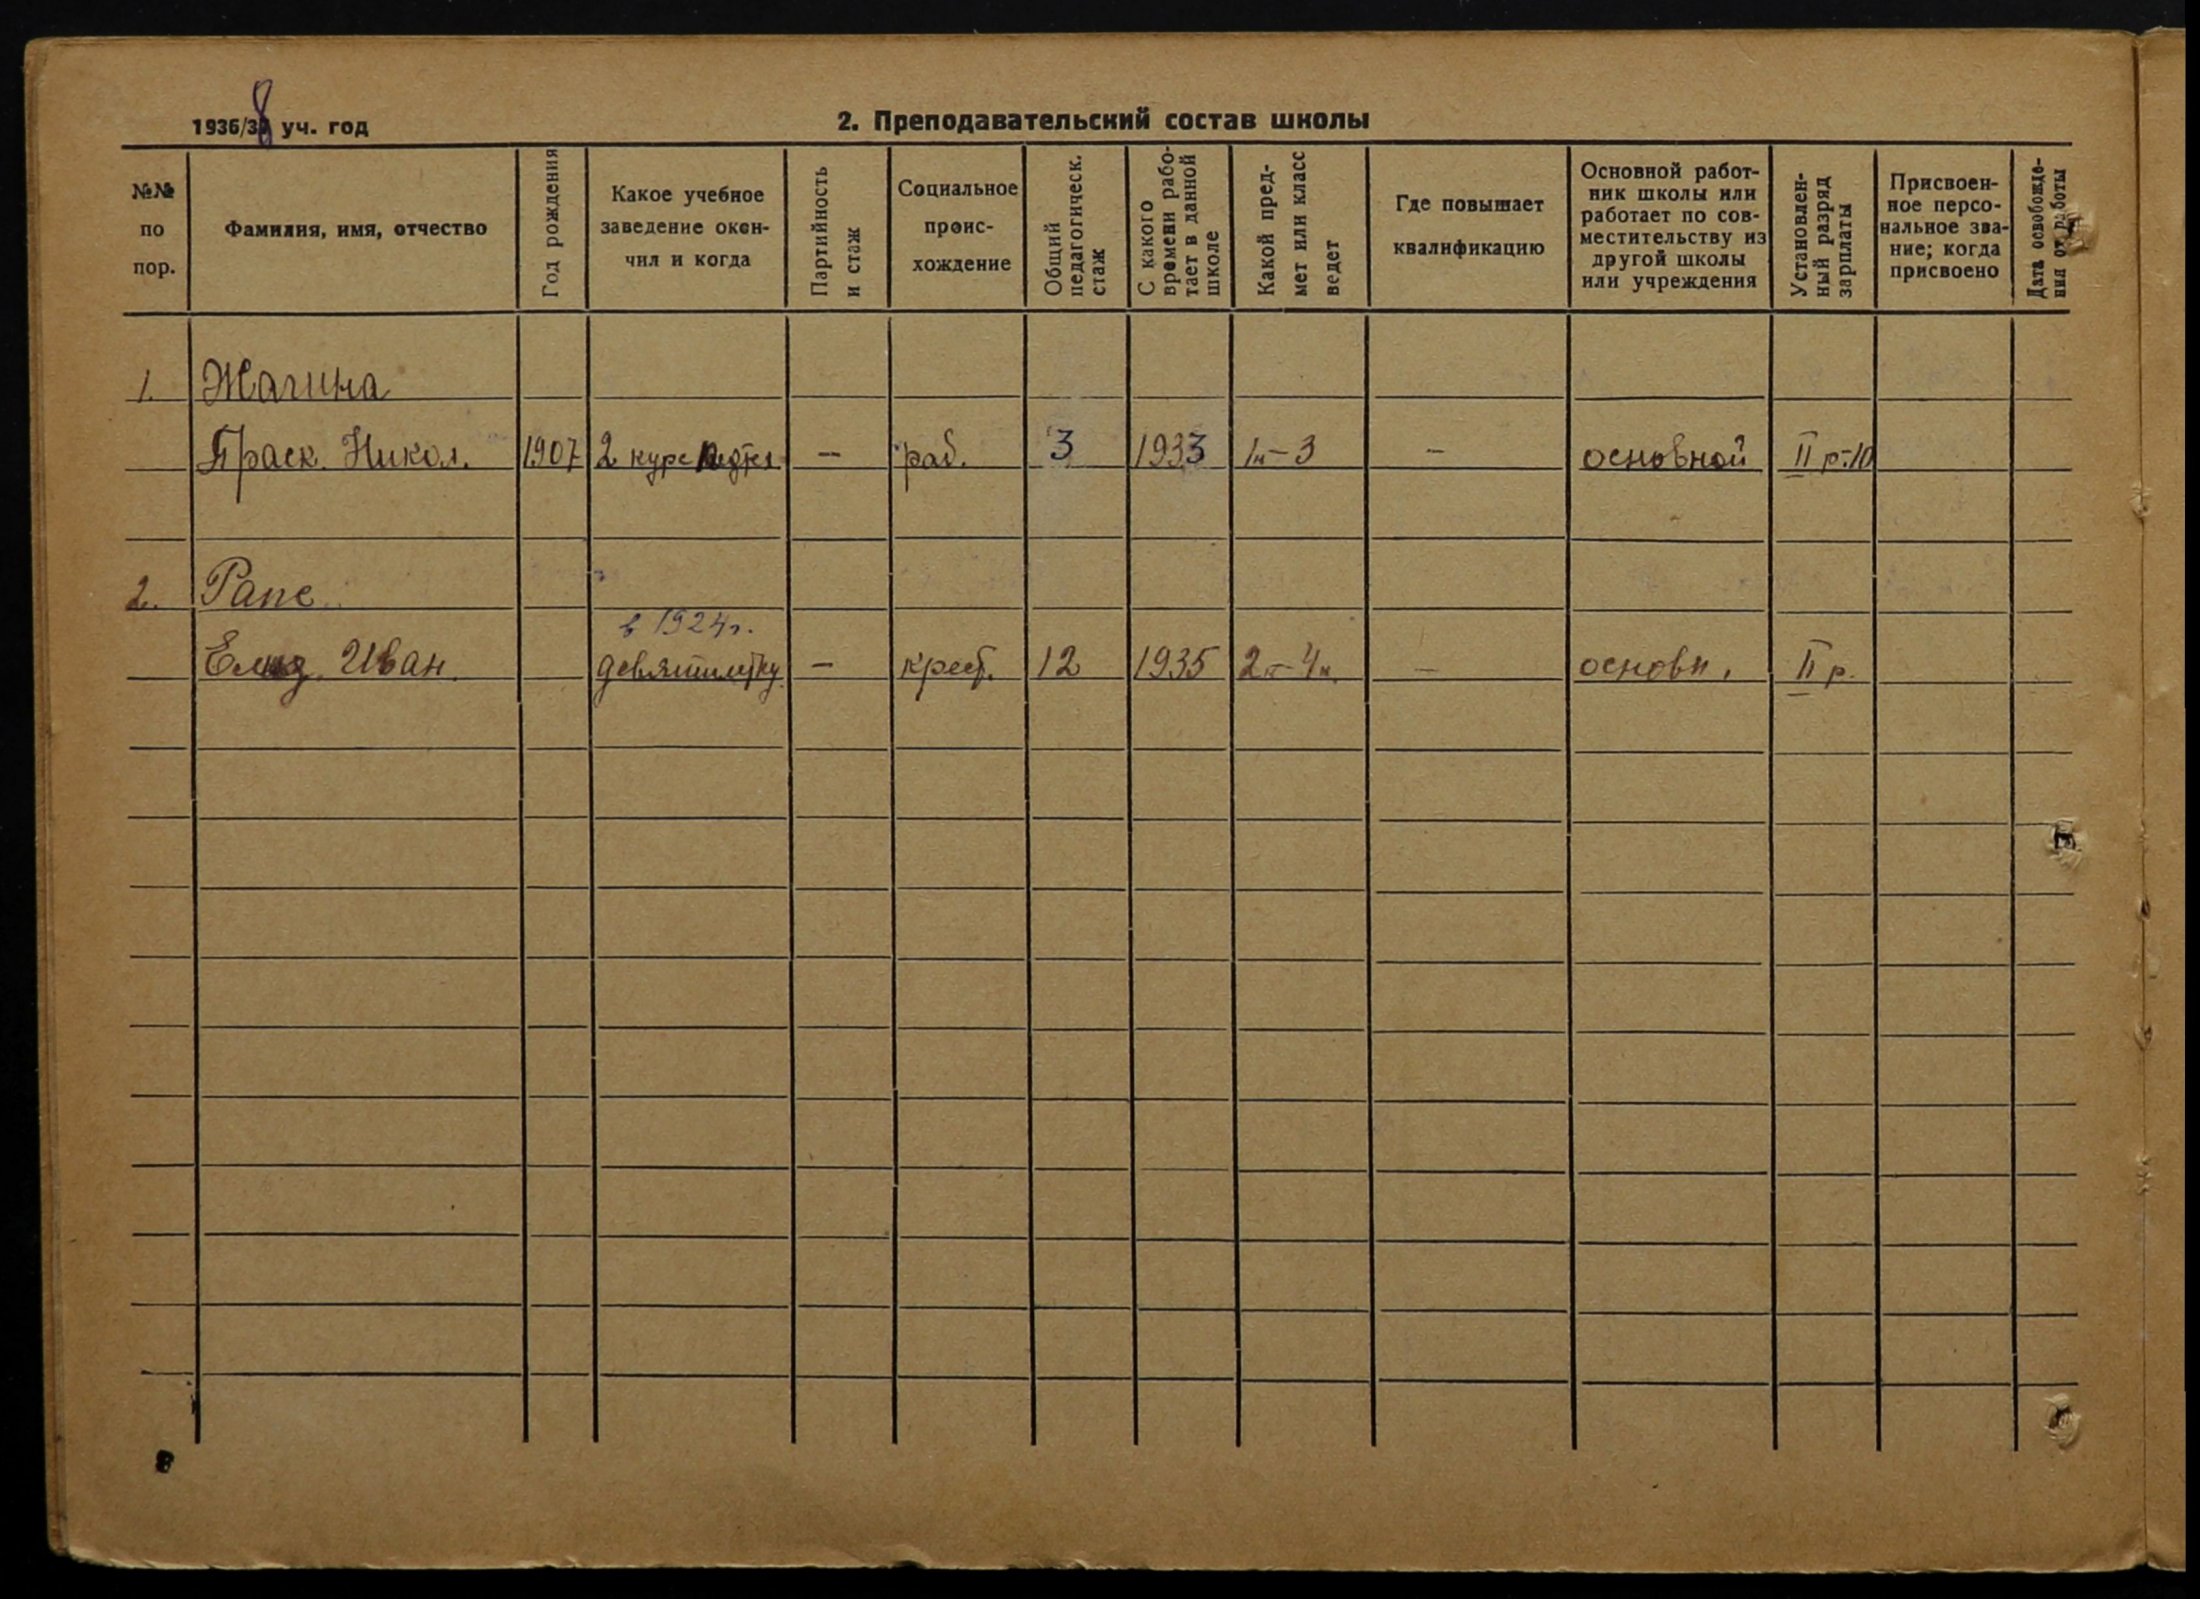 1936/38 уч. год
2. Преподавательский состав школы
№№ по пор.
Фамилия, имя, отчество
Год рождения
Какое учебное заведение окончил и когда
Партийность и стаж
Социальное происхождение
Общий педагогическ. стаж
С какого времени работает в данной школе
Какой предмет или класс ведет
Где повышает квалификацию
Основной работник школы или работает по совместительству из другой школы или учреждения
Установленный разряд зарплаты
Присвоенное персональное звание; когда присвоено
Дата освобождения от работы
1. Жагина
Праск. Никол. 1907 2 курс — раб. 3 1933 1к–3 — основной II р.
2. Рапе
в 1924 г.
Елиз. Иван. девятилетку — крест. 12 1935 2к–4к. — основн. II р.
8